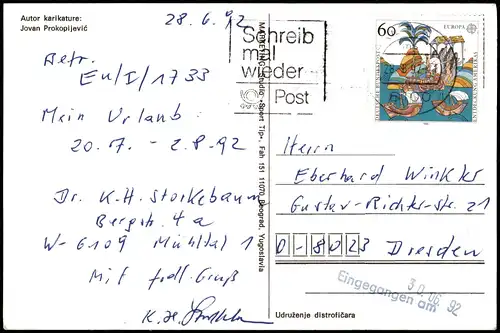 Autor karikature:
Jovan Prokopijević
28.6.92
Betr.
En/I/1733
Mein Urlaub:
20.7. - 2.8.92
Dr. K.-H. Storkebaum
Bergstr. 4a
W-6109 Mühltal 1
Mit frdl. Gruß
MARKETING: Studio „Sport Tip“, Fah 151 11070 Beograd, Yugoslavia
Schreib
mal
wieder
Post
60
EUROPA
DEUTSCHE BUNDESPOST
Herrn
Eberhard Winkler
Gustav-Richter-str. 21
O-8023 Dresden
Eingegangen am 30.06.92
Udruženje distrofičara